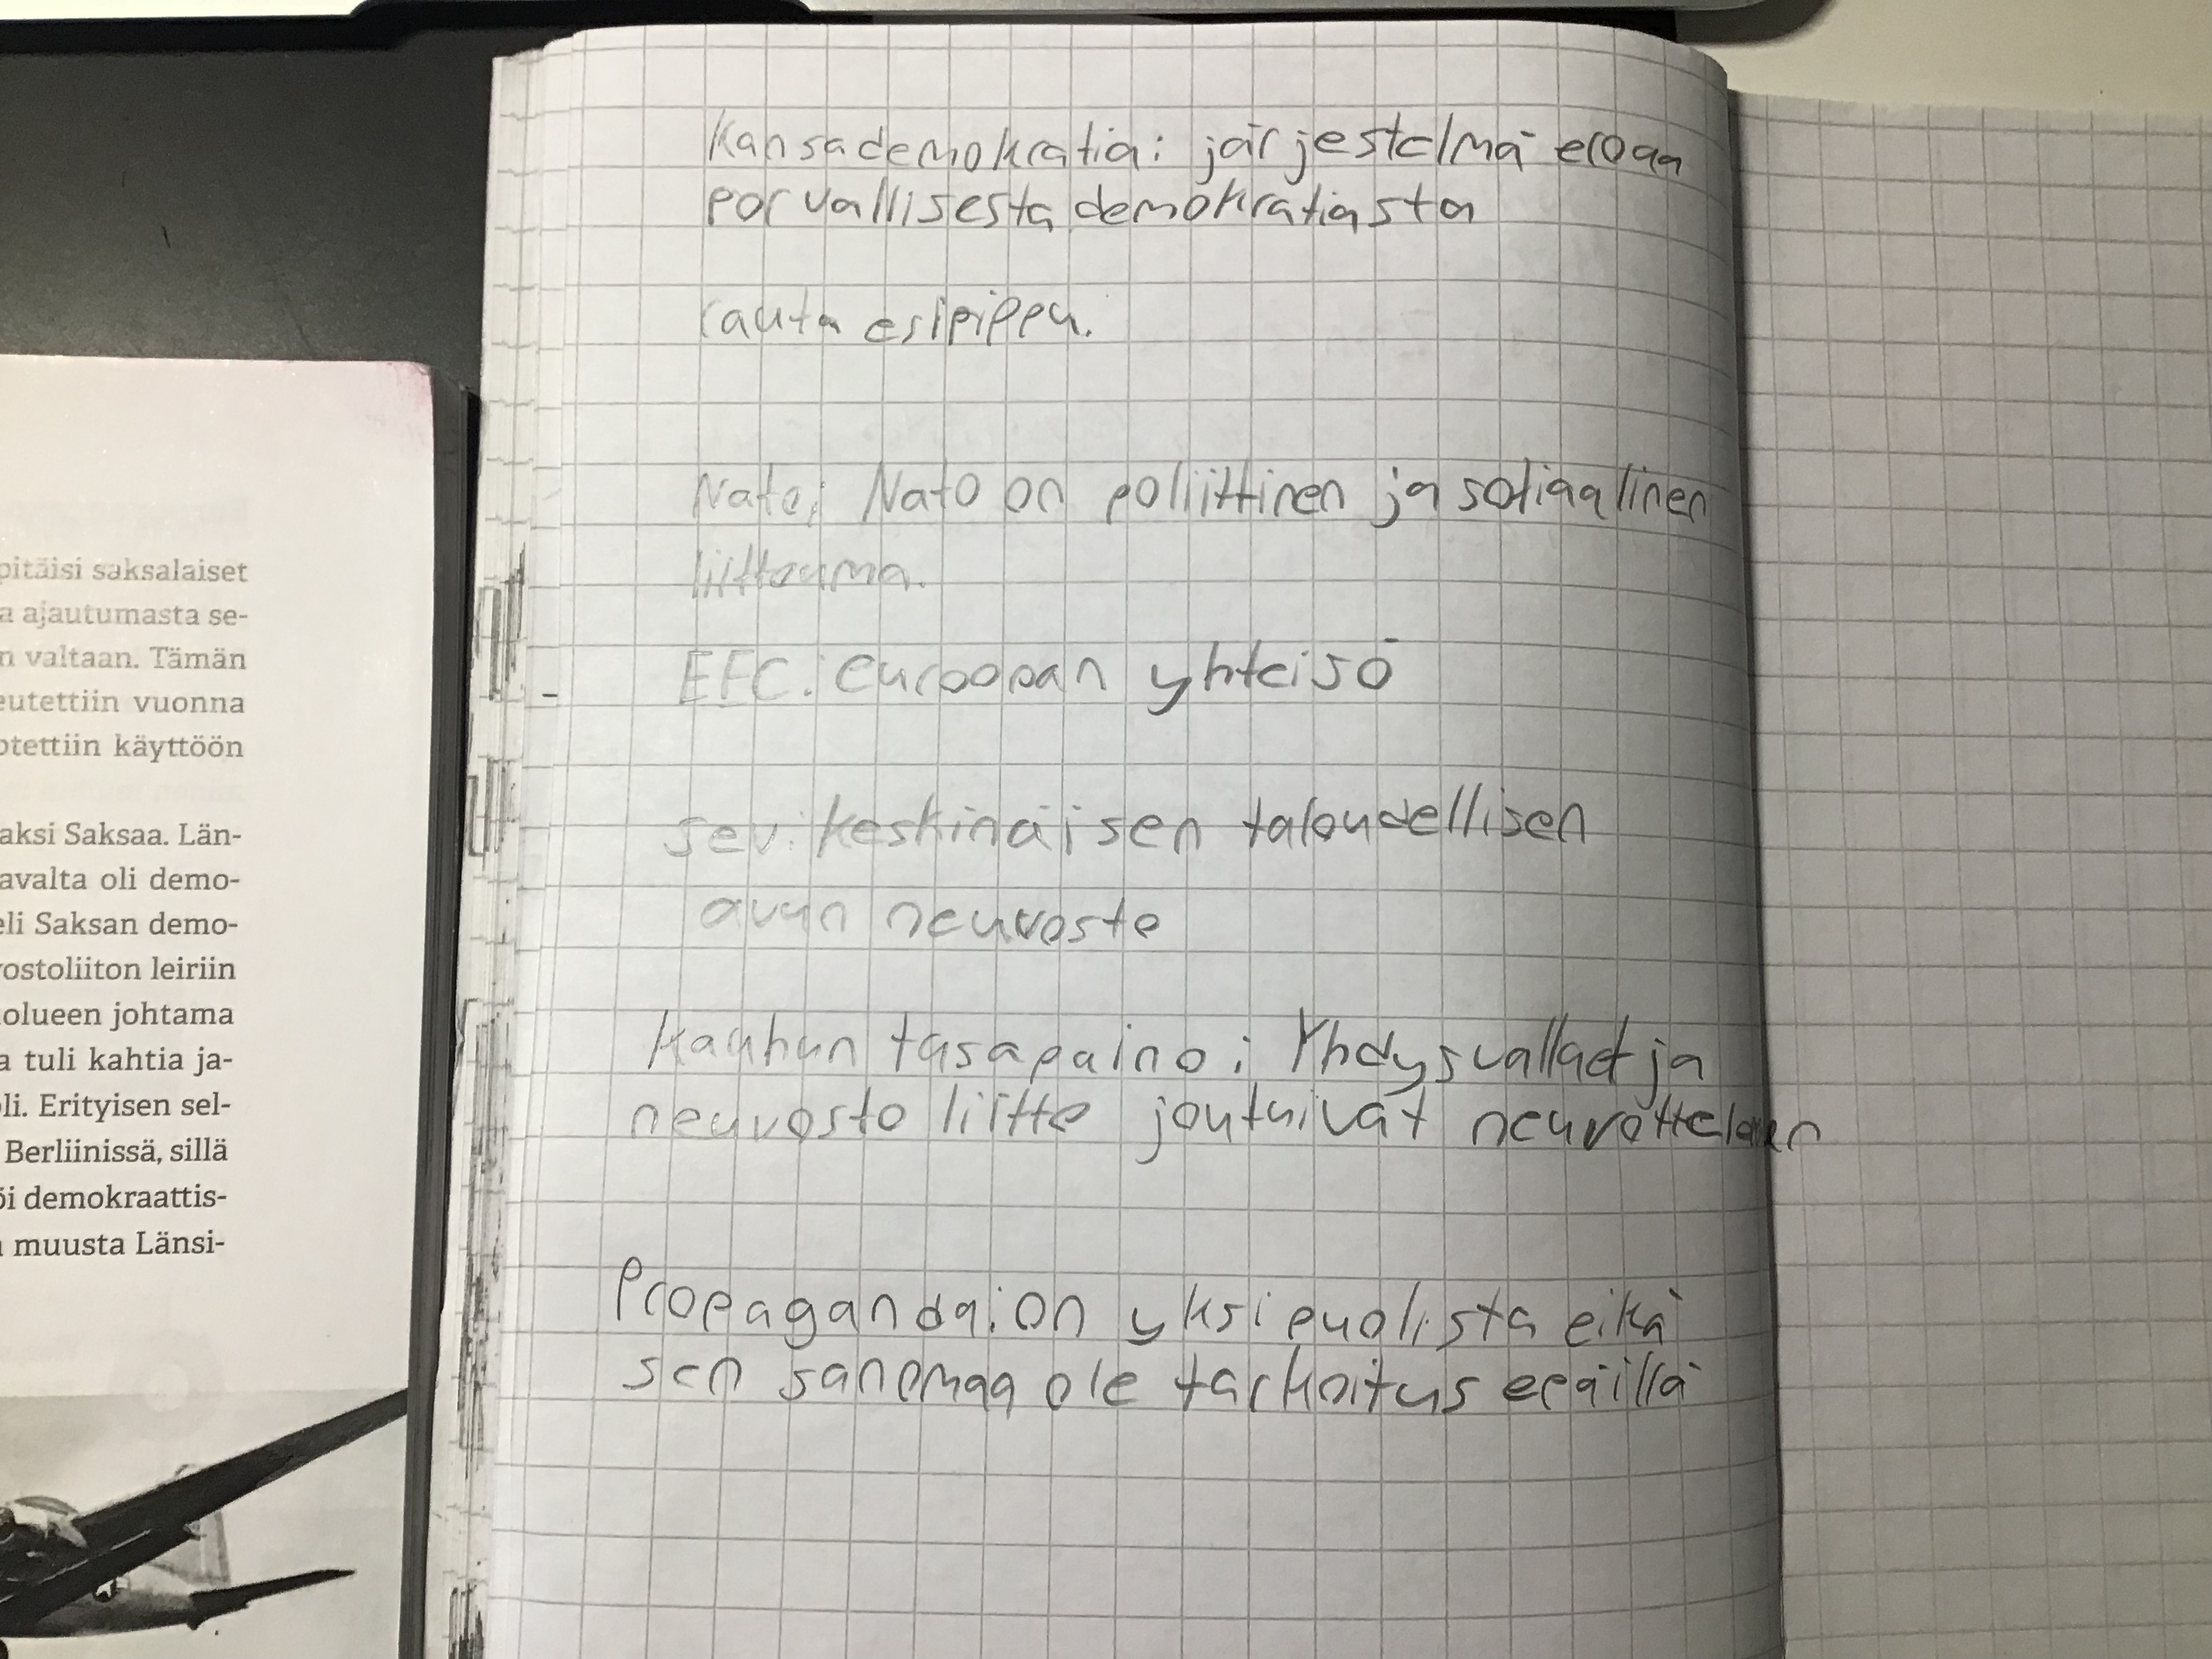 pitäisi saksalaiset
a ajautumasta se-
n valtaan. Tämän
eutettiin vuonna
otettiin käyttöön
aksi Saksaa. Län-
avalta oli demo-
eli Saksan demo-
vostoliiton leiriin
olueen johtama
a tuli kahtia ja-
oli. Erityisen sel-
Berliinissä, sillä
öi demokraattis-
muusta Länsi-
Kansademokratia: järjestelmä eroaa
porvallisesta demokratiasta
rauta esipippu.
Nato: Nato on poliittinen ja sotiaalinen
liittouma.
EEC: euroopan yhteisö
sev: keskinäisen taloudellisen
avun neuvosto
Kauhun tasapaino: Yhdysvallat ja
neuvosto liitto joutuivat neuvotteluun
Propaganda: on yksipuolista eikä
sen sanomaa ole tarkoitus epäillä